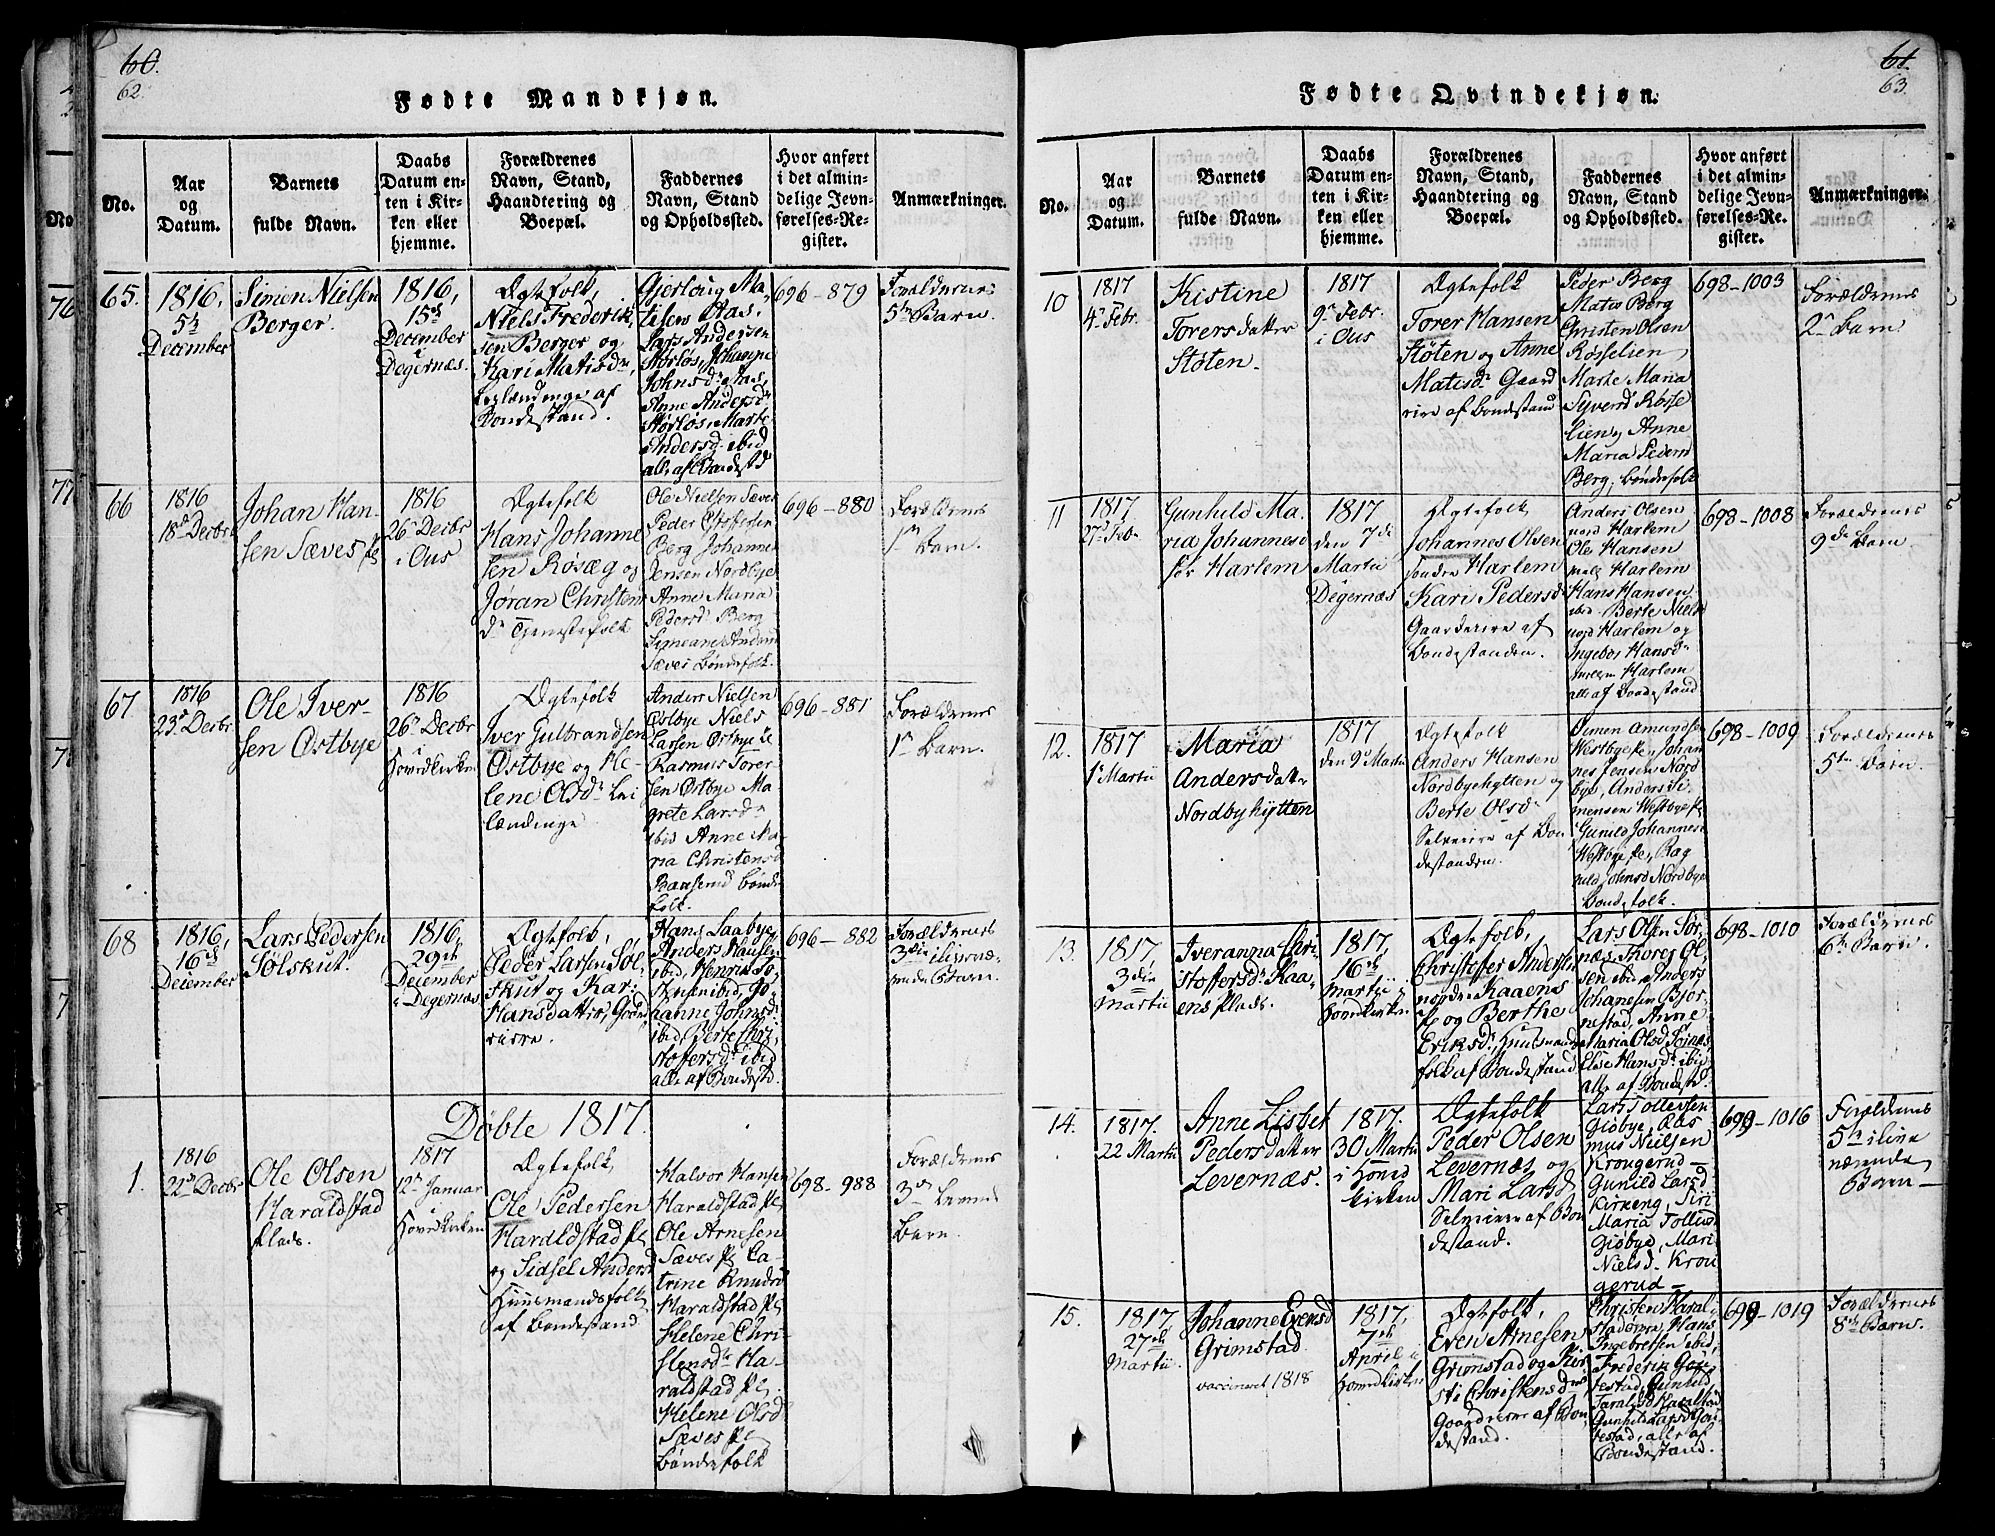 60.
62.
Fødte Mandkjøn.
No.
Aar
og
Datum.
Barnets
fulde Navn.
Daabs
Datum en-
ten i Kir-
ken eller
hjemme.
Forældrenes
Navn, Stand,
Haandtering og
Boepæl.
Faddernes
Navn, Stand
og Opholdssted.
Hvor anført
i det almin-
delige Jevn-
førelses-Re-
gister.
Anmærkninger.
65.
1816,
5te
December
Simen Nielsen
Berger.
1816,
15de
December
i
Degernæs.
Ægtefolk,
Niels Frederik-
sen Berger og
Kari Matisdr,
af
Bondestand.
Gjerloug Ma-
tisens Aas,
Lars Andersen
Størlos, Johanne
Johnsd: Aas,
Anne Andersd:
Størlos, Marte
Andersd: ibid
alle af Bondestd
696-879
Forældrenes
5te Barn.
66
1816
18de Decbr
Johan Han-
sen Sæves pl
1816
26de Decbr
i Ous
Ægtefolk
Hans Johanne
sen Røsæg og
Jøran Christens
dr Tjenestefolk
Ole Nielsen Sæves
Peder Christensen
Berg Johannes
Jensen Nordbye
Anne Maria
Pedersd Berg
Simeane Anders
Sæves bøndefolk.
696-880
Forældrenes
1te Barn.
67.
1816
23de Decbr
Ole Iver-
sen Østbye
1816
26de Decbr
i
Hovedkirken
Ægtefolk
Iver Gulbrandsen
Østbye og He-
lene Olsdr Lei
lændinge
Anders Nielsen
Østbye Niels
Larsen Østbye
Rasmus Torer
sen Østbye Ma
grete Larsdr
ibid Anne Ma-
ria Christensd
bønde
folk.
696-881
Forældrenes
1te Barn.
68
1816,
16de
December
Lars Pedersen
Sølskut.
1816,
29de
December
i Degernæs
Ægtefolk,
Peder Larsen Søl-
skut og Kari
Hansdatter, Gaard-
Hans Saabye,
Anders Hansen
ibid, Henrik
ibid, Jo-
hanne Johnsd:
ibid, Berte Chri-
stoffersd: ibid
alle af Bondestd.
696-882
Forældrenes
3die ilivevæ-
rende Barn.
Døbte 1817.
1.
1816
22de Decbr
Ole Olsen
Haraldstad
plads.
1817
12te Januar
i
Hovedkirken
Ægtefolk
Ole Pedersen
Haraldstad pl
og Sidsel Andersd
Huusmandsfolk
af Bondestand
Halvor Hansen
Haraldstad pl
Ole Arnesen
Sæves pl Ca-
trine Knudsd
Haraldstad pl
Helene Chri-
stensdr Ha-
raldstad pl.
Helene Olsd
Sæves pl
bøndefolk
698-988
Forældrenes
3de levende
Barn.
61.
63.
Fødte Qvindekjøn.
No.
Aar
og
Datum.
Barnets
fulde Navn.
Daabs
Datum en-
ten i Kir-
ken eller
hjemme.
Forældrenes
Navn, Stand,
Haandtering og
Boepæl.
Faddernes
Navn, Stand
og Opholdssted.
Hvor anført
i det almin-
delige Jevn-
førelses-Re-
gister.
Anmærkninger.
10
1817
4de Febr.
Kistine
Torersdatter
Støten.
1817
9de Febr.
i Ous
Ægtefolk
Torer Hansen
Støten og Anne
Matisdr Gaard
af bondestand
Peder Berg
Matis Berg
Christen Olsen
Røsselien,
Marte Maria
Syversd Røsse
lien, Anne
Maria Peders
Berg, bøndefolk
698-1003
Forældrenes
2de Barn
11
1817.
27de Feb
Gunhild Ma-
ria Johannesd
Harlem
1817
den 7de
Martii
i
Degernæs
Ægtefolk
Johannes Olsen
søndre Harlem
Kari Pedersd
Gaardeiere af
Bondestanden.
Anders Olsen
nord Harlem
Ole Hansen
Harlem
Hans Hansen
ibid. Berte Niels
nord Harlem og
Ingebor Hansdr
Harlem
alle af Bondestand
698-1008
Forældrenes
9de Barn
12.
1817
1te Martii
Maria
Andersdatter
Nordbyhytten
1817
den 9de Martii
Ægtefolk
Anders Hansen
Nordbyehytten og
Berte Olsdr
Selveiere af Bon
destanden.
Simen Amundsen
Westbye pl, Johan
nes Jensen Nord
bye, Anders Si
mensen Westbye pl
Gunild Johannesd
Westbye pl, Rag
nild Jensd Nordbye
Bondefolk.
698-1009
Forældrenes
5te Barn.
13.
1817,
3die
Martii
Iveranna Chri-
stoffersd: Kaa-
ens plads.
1817,
16de
Martii i
Hovedkirken
Ægtefolk,
Christoffer Andersen
nordre Kaaens
pl og Berthe
Eriksd:, Huusmands-
folk af Bondestand
Lars Olsen Sør-
næs, Thores Ol-
sen ibid, Anders
Johanesen Bjør-
nestad, Anne
Maria Olsd Sørnæs
Else Hansd: ibid
alle af Bondestd.
698-1010
Forældrenes
6te Barn.
14.
1817.
22 Martii
Anne Lisbet
Pedersdatter
Levernæs.
1817.
30 Martii
i Hoved
kirken
Ægtefolk
Peder Olsen
Levernæs og
Mari Larsd
Selveiere af Bon
destand.
Lars Tollefsen
Giøbye, Ras
mus Nielsen
Krougerud -
Gunild Larsd
Kirkeng, Siri
Maria Tollefsd
Giøbye, Mari
Nielsd Krou
gerud -
699-1016
Forældrenes
5te ilive
værende
Barn -
15.
1817.
27de
Martii.
Johanne Evensd
Grimstad.
vaccineret 1818
1817,
7de
April i
Hovedkirken
Ægtefolk,
Even Arnesen
Grimstad og Kir-
sti Christensdr
Gaardeiere af Bon
destand.
Christen Haral-
stad, Hans
Ingebretsen ibid,
Frederik Gou-
testad, Gunhild
Haralstad
Gunhild Larsd Gou-
testad, alle af
Bondestand.
699-1019
Forældrenes
8de Barn.
76
77